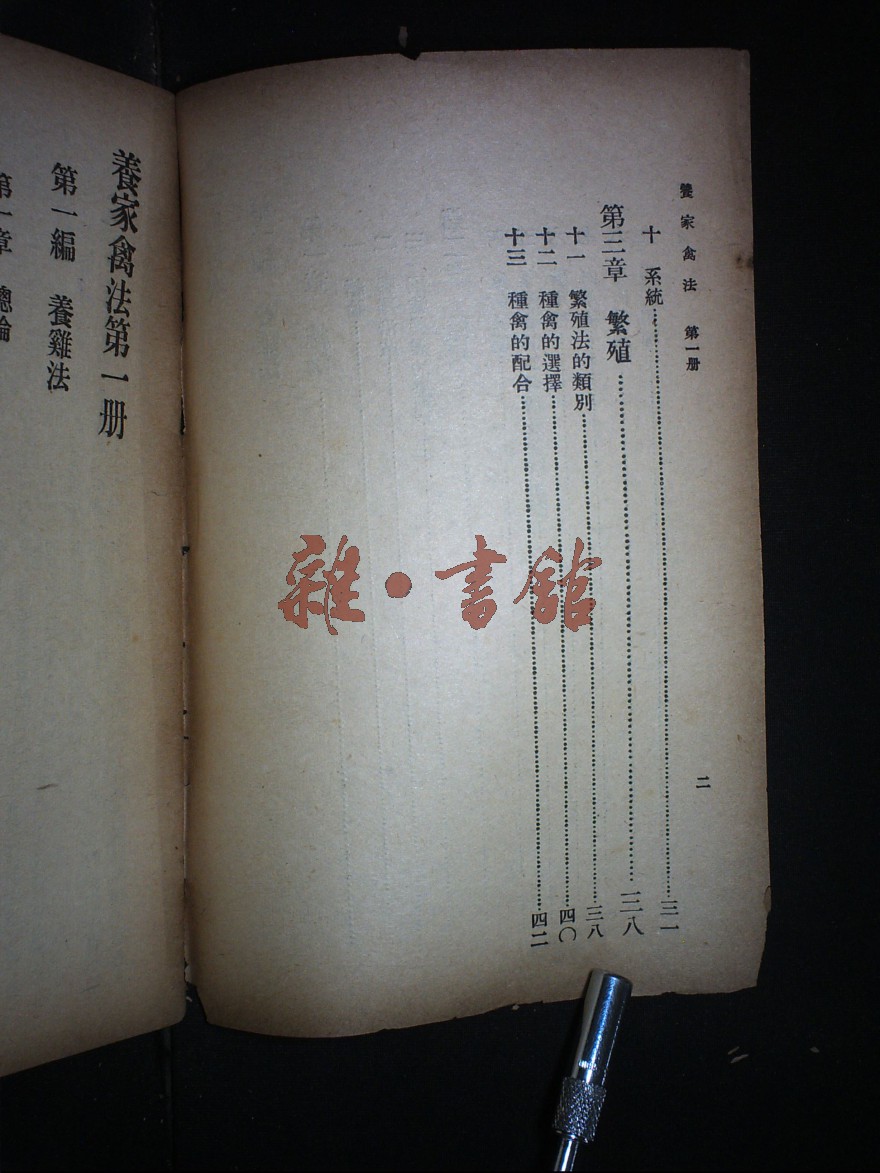 養家禽法 第一册
二
十 系統……三一
第三章 繁殖……三八
十一 繁殖法的類別……三八
十二 種禽的選擇……四〇
十三 種禽的配合……四二
養家禽法第一册
第一編 養雞法
第一章 總論
雜·書館